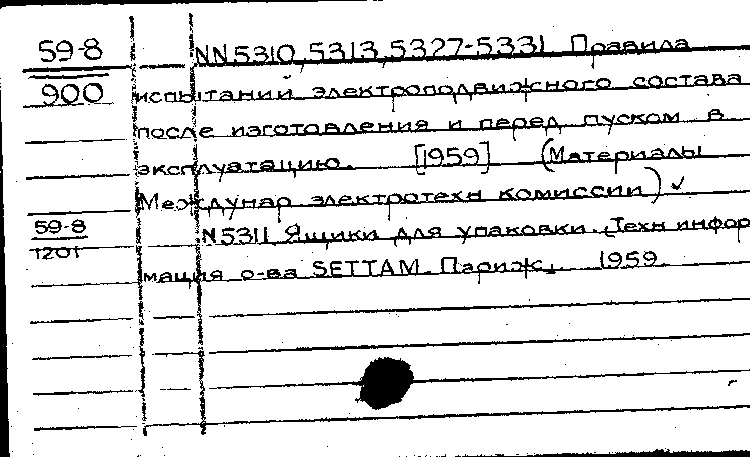 59-8 NN5310, 5313, 5327-5331 Правила
900 испытаний электроподвижного состава
после изготовления и перед пуском в
эксплуатацию. [1959] (Материалы
Междунар электротехн комиссии) ✓
59-8 N5311 Ящики для упаковки. (Техн инфор
1201 мация о-ва SETTAM. Париж, 1959.